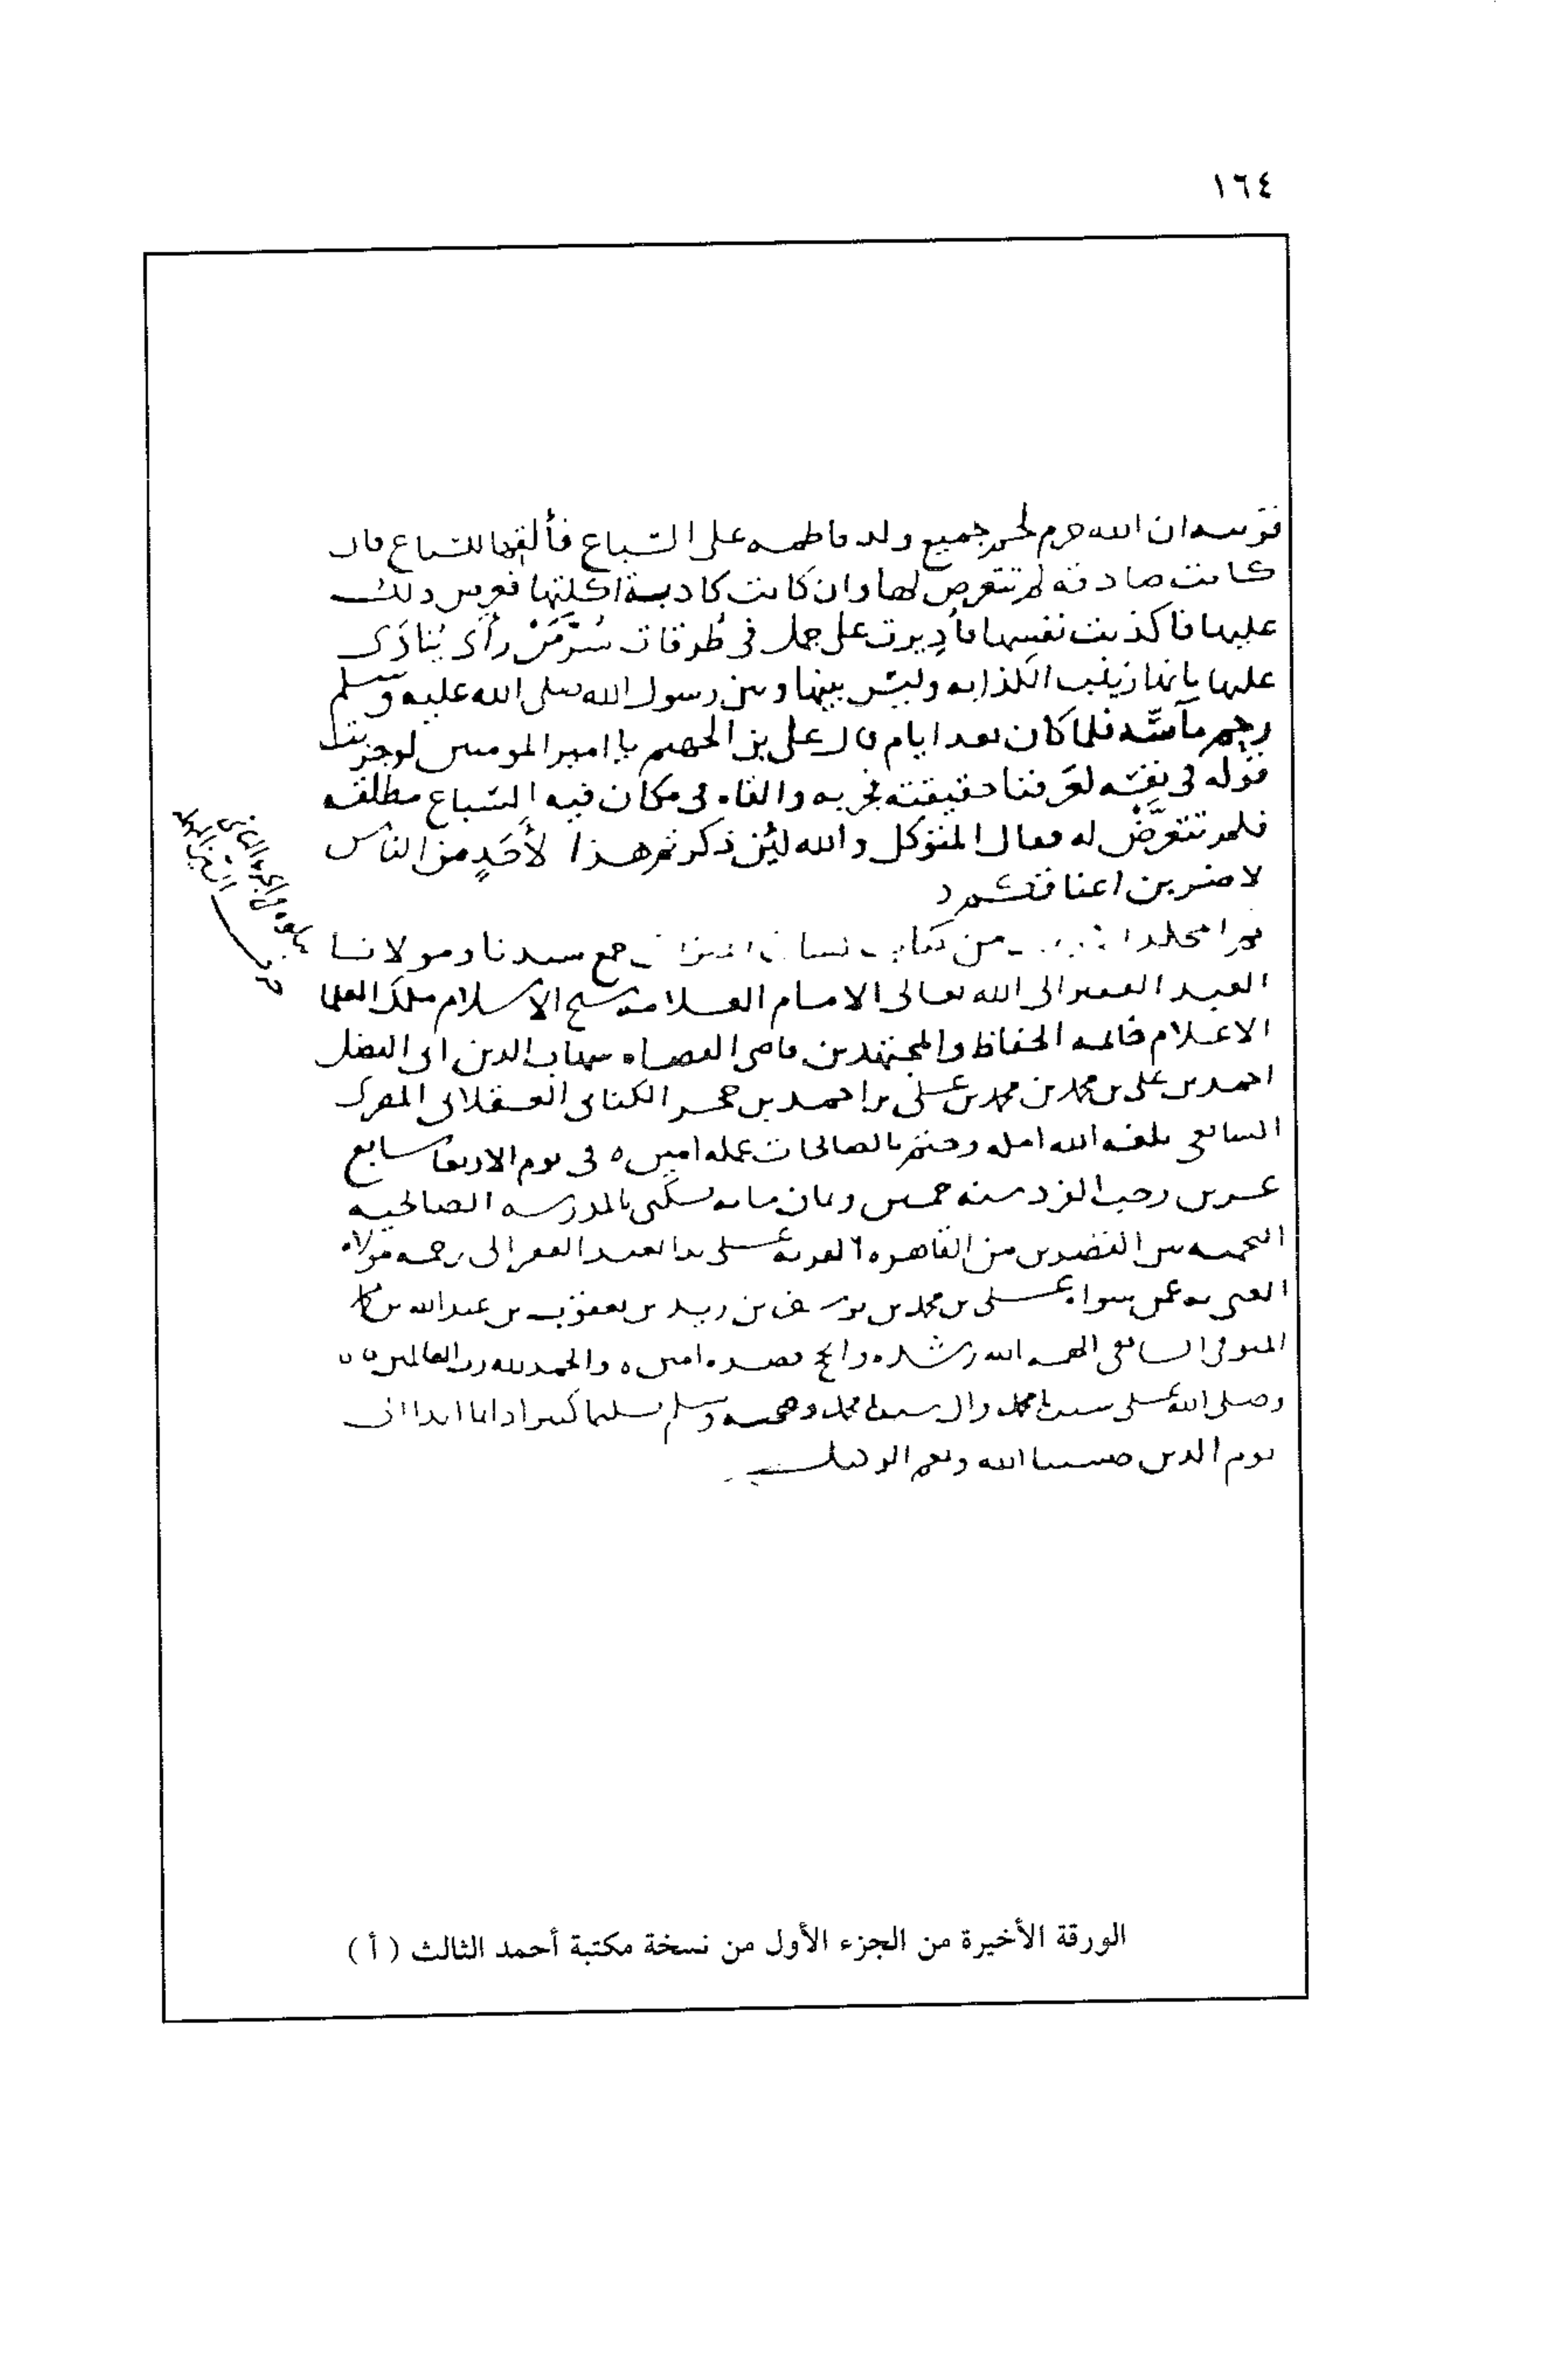 ١٦٤
ان الله حرم لحم جميع ولد فاطمه على السباع فألقها للسباع فان
كانت صادقه لم تتعرض لها وان كانت كاذبة اكلتها فعرض ذلك
عليها فاكذبت نفسها فأديرت على جمل في طرقات سُرَّ مَنْ رأى يُنادَى
عليها بانها زينب الكذابه وليس بينها وبين رسول الله صلى الله عليه وسلم
رحم ماسّه فلما كان بعد ايام قال علي بن الجهم يا امير المومنين لو جربت
قوله في نفسه لعرفنا حقيقته فجربه والقاه في مكان فيه السباع مطلقه
فلم تتعرَّض له فقال المتوكل والله لئن ذكرتم هذا لأحَدٍ من الناس
لاضربن اعناقكم
المجلد من كتاب لسان الميزان جمع سيدنا ومولانا
العبد الفقير الى الله تعالى الامام العلامه شيخ الاسلام ملك العلما
الاعلام خاتمه الحفاظ والمجتهدين قاضي القضاه شهاب الدين ابي الفضل
احمد بن علي بن محمد بن محمد بن علي بن احمد بن حجر الكناني العسقلاني المصري
الشافعي بلغه الله امله وختم بالصالحات عمله امين ٥ في يوم الاربعا سابع
عشرين رجب الفرد سنه خمس وثمان مايه بسكني بالمدرسه الصالحيه
النجميه بين القصرين من القاهره المعزيه على يد العبد الفقير الى رحمه مولاه
الغني به عمن سواه علي بن محمد بن يوسف بن زيد بن يعقوب بن عبد الله بن
المنوفي الشافعي الهمه الله رشده وانجح قصده امين ٥ والحمد لله رب العالمين ٥٥
وصلى الله على سيدنا محمد وال سيدنا محمد وصحبه وسلم تسليما كثيرا دايما ابدا الى
يوم الدين حسبنا الله ونعم الوكيل
الورقة الأخيرة من الجزء الأول من نسخة مكتبة أحمد الثالث ( أ )